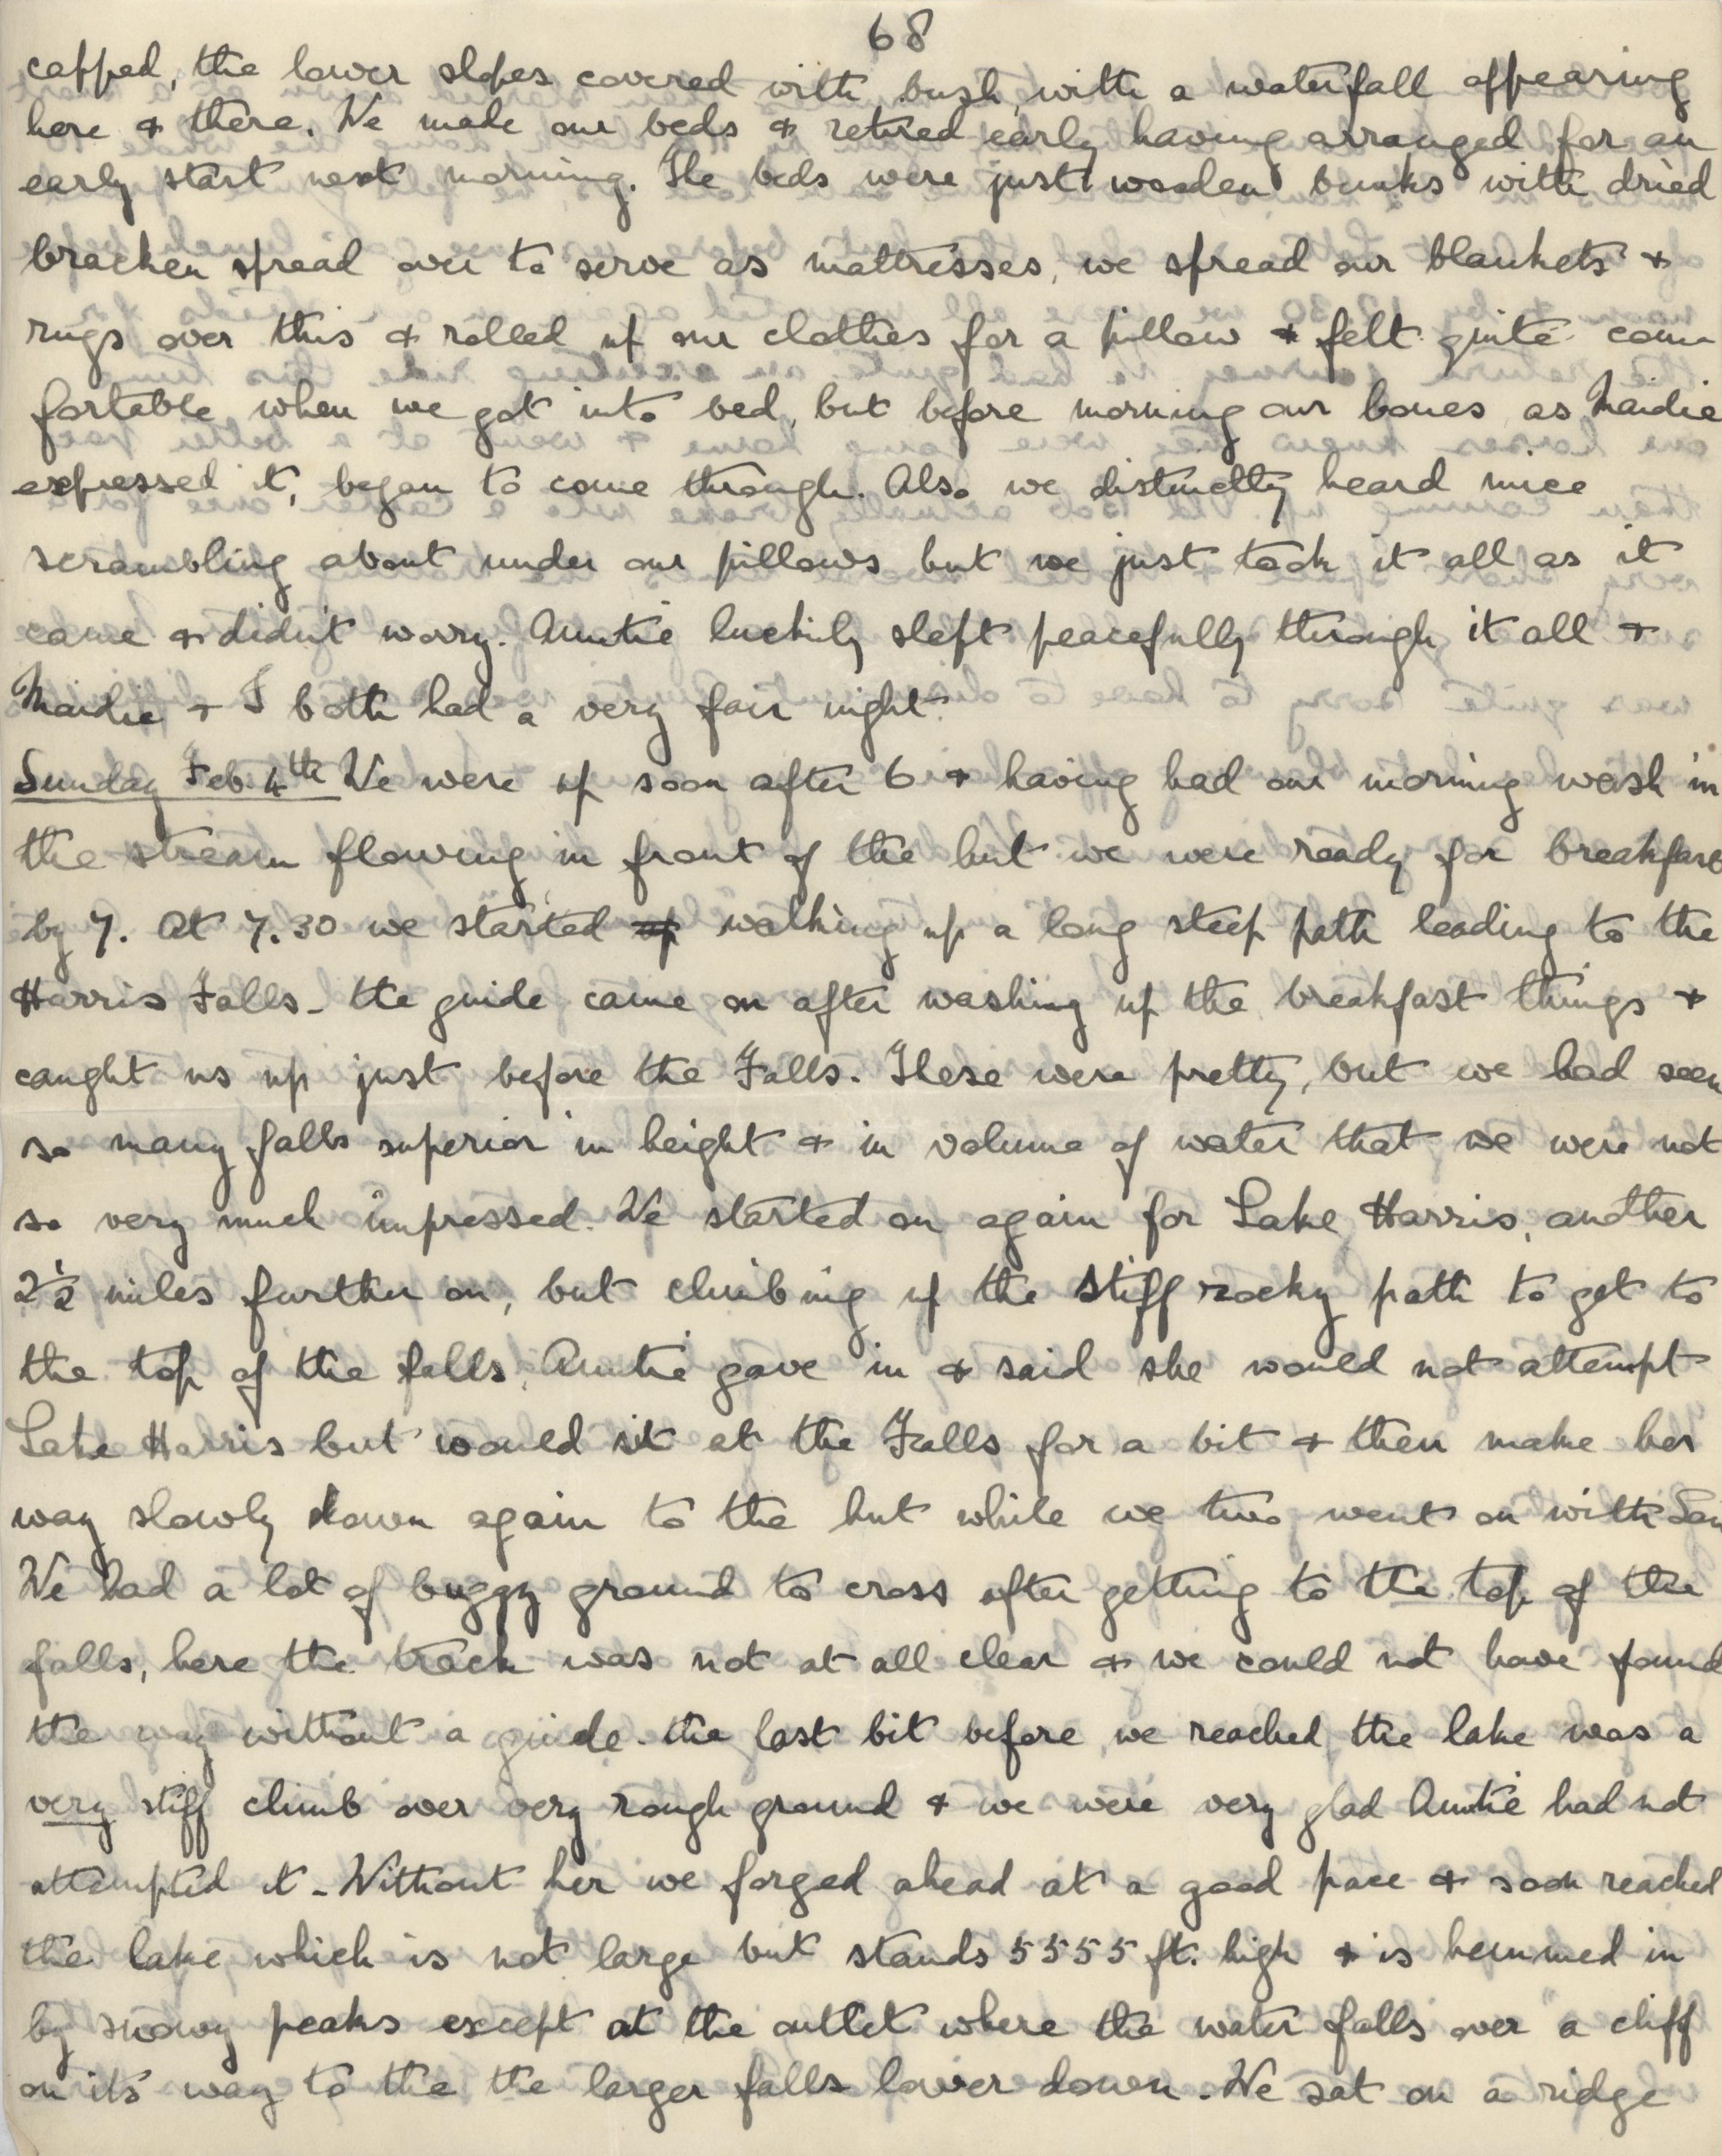 68
capped, the lower slopes covered with bush, with a waterfall appearing
here & there. We made our beds & retired early having arranged for an
early start next morning. The beds were just wooden bunks with dried
bracken spread over to serve as mattresses, we spread our blankets &
rugs over this & rolled up our clothes for a pillow & felt quite com
fortable when we got into bed, but before morning our bones, as Maidie
expressed it, began to come through. Also we distinctly heard mice
scrambling about under our pillows but we just took it all as it
came & didn't worry. Auntie luckily slept peacefully through it all &
Maidie & I both had a very fair night.
Sunday Feb. 4th We were up soon after 6 & having had our morning wash in
the stream flowing in front of the hut we were ready for breakfast
by 7. At 7.30 we started up walking up a long steep path leading to the
Harris Falls - the guide came on after washing up the breakfast things &
caught us up just before the Falls. These were pretty, but we had seen
so many falls superior in height & in volume of water that we were not
so very much impressed. We started on again for Lake Harris, another
2½ miles further on, but climbing up the stiff rocky path to get to
the top of the falls, Auntie gave in & said she would not attempt
Lake Harris but would sit at the Falls for a bit & then make her
way slowly down again to the hut while we two went on with
We had a lot of buggy ground to cross after getting to the top of the
falls, here the track was not at all clear & we could not have found
the way without a guide. the last bit before we reached the lake was a
very stiff climb over very rough ground & we were very glad Auntie had not
attempted it - Without her we forged ahead at a good pace & soon reached
the lake, which is not large but stands 5555 ft. high & is hemmed in
by snowy peaks except at the outlet where the water falls over a cliff
on its way to the the larger falls lower down. We sat on a ridge